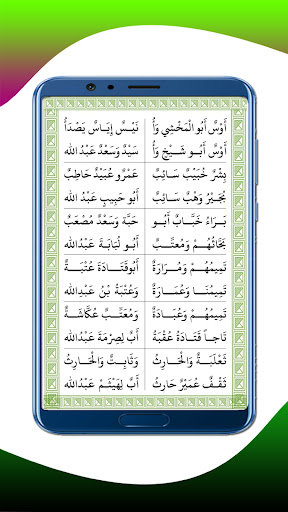 أَوْسٌ أَبُو الْمَخْشِي وَأُ نَيْـسٌ إِيَاسٌ يَصْدَأُ
أَوْسٌ أَبُـو شَـيْـخٍ وَأُ سَيِّدٌ وَسَعْدٌ عَبْدُ الله
بِشْرٌ خُبَيْبٌ سَائِبٌ عَمْرٌو عُبَيْدٌ حَاطِبٌ
بُجَيْرُ وَهْبٌ سَائِبٌ أَبُو حَبِيبٍ عَبْدُ الله
بَرَاءُ خَبَّابٌ أَبُو حَبَّة وَسَعْدٌ مِصْعَبٌ
بَحَّاثُـهُـمْ وَمُعَتِّـبٌ أَبُو لُبَابَةَ عَبْدُالله
تَمِيمُـهُـمْ وَمُـرَارَةٌ أَبُوقَتَادَةَ عُتْبَةٌ
تَمِيمُـنَـا وَعُمَـارَةٌ وَعُتْبَةُ بْنُ عَبْدِالله
تَمِيمُـهُـمْ وَعُبَادَةٌ وَمُعَتِّبٌ عُكَّاشَةٌ
نَاجاً قَتَادَةُ عُقْبَةٌ أَبٌ لِصِرْمَةَ عَبْدُالله
ثَعْلَبَةٌ وَالْحَارِثُ وَثَابِتٌ وَالْحَارِثُ
ثَقْـفٌ عُمَيْرٌ حَارِثٌ أَبٌ لِهَيْثَمْ عَبْدُالله